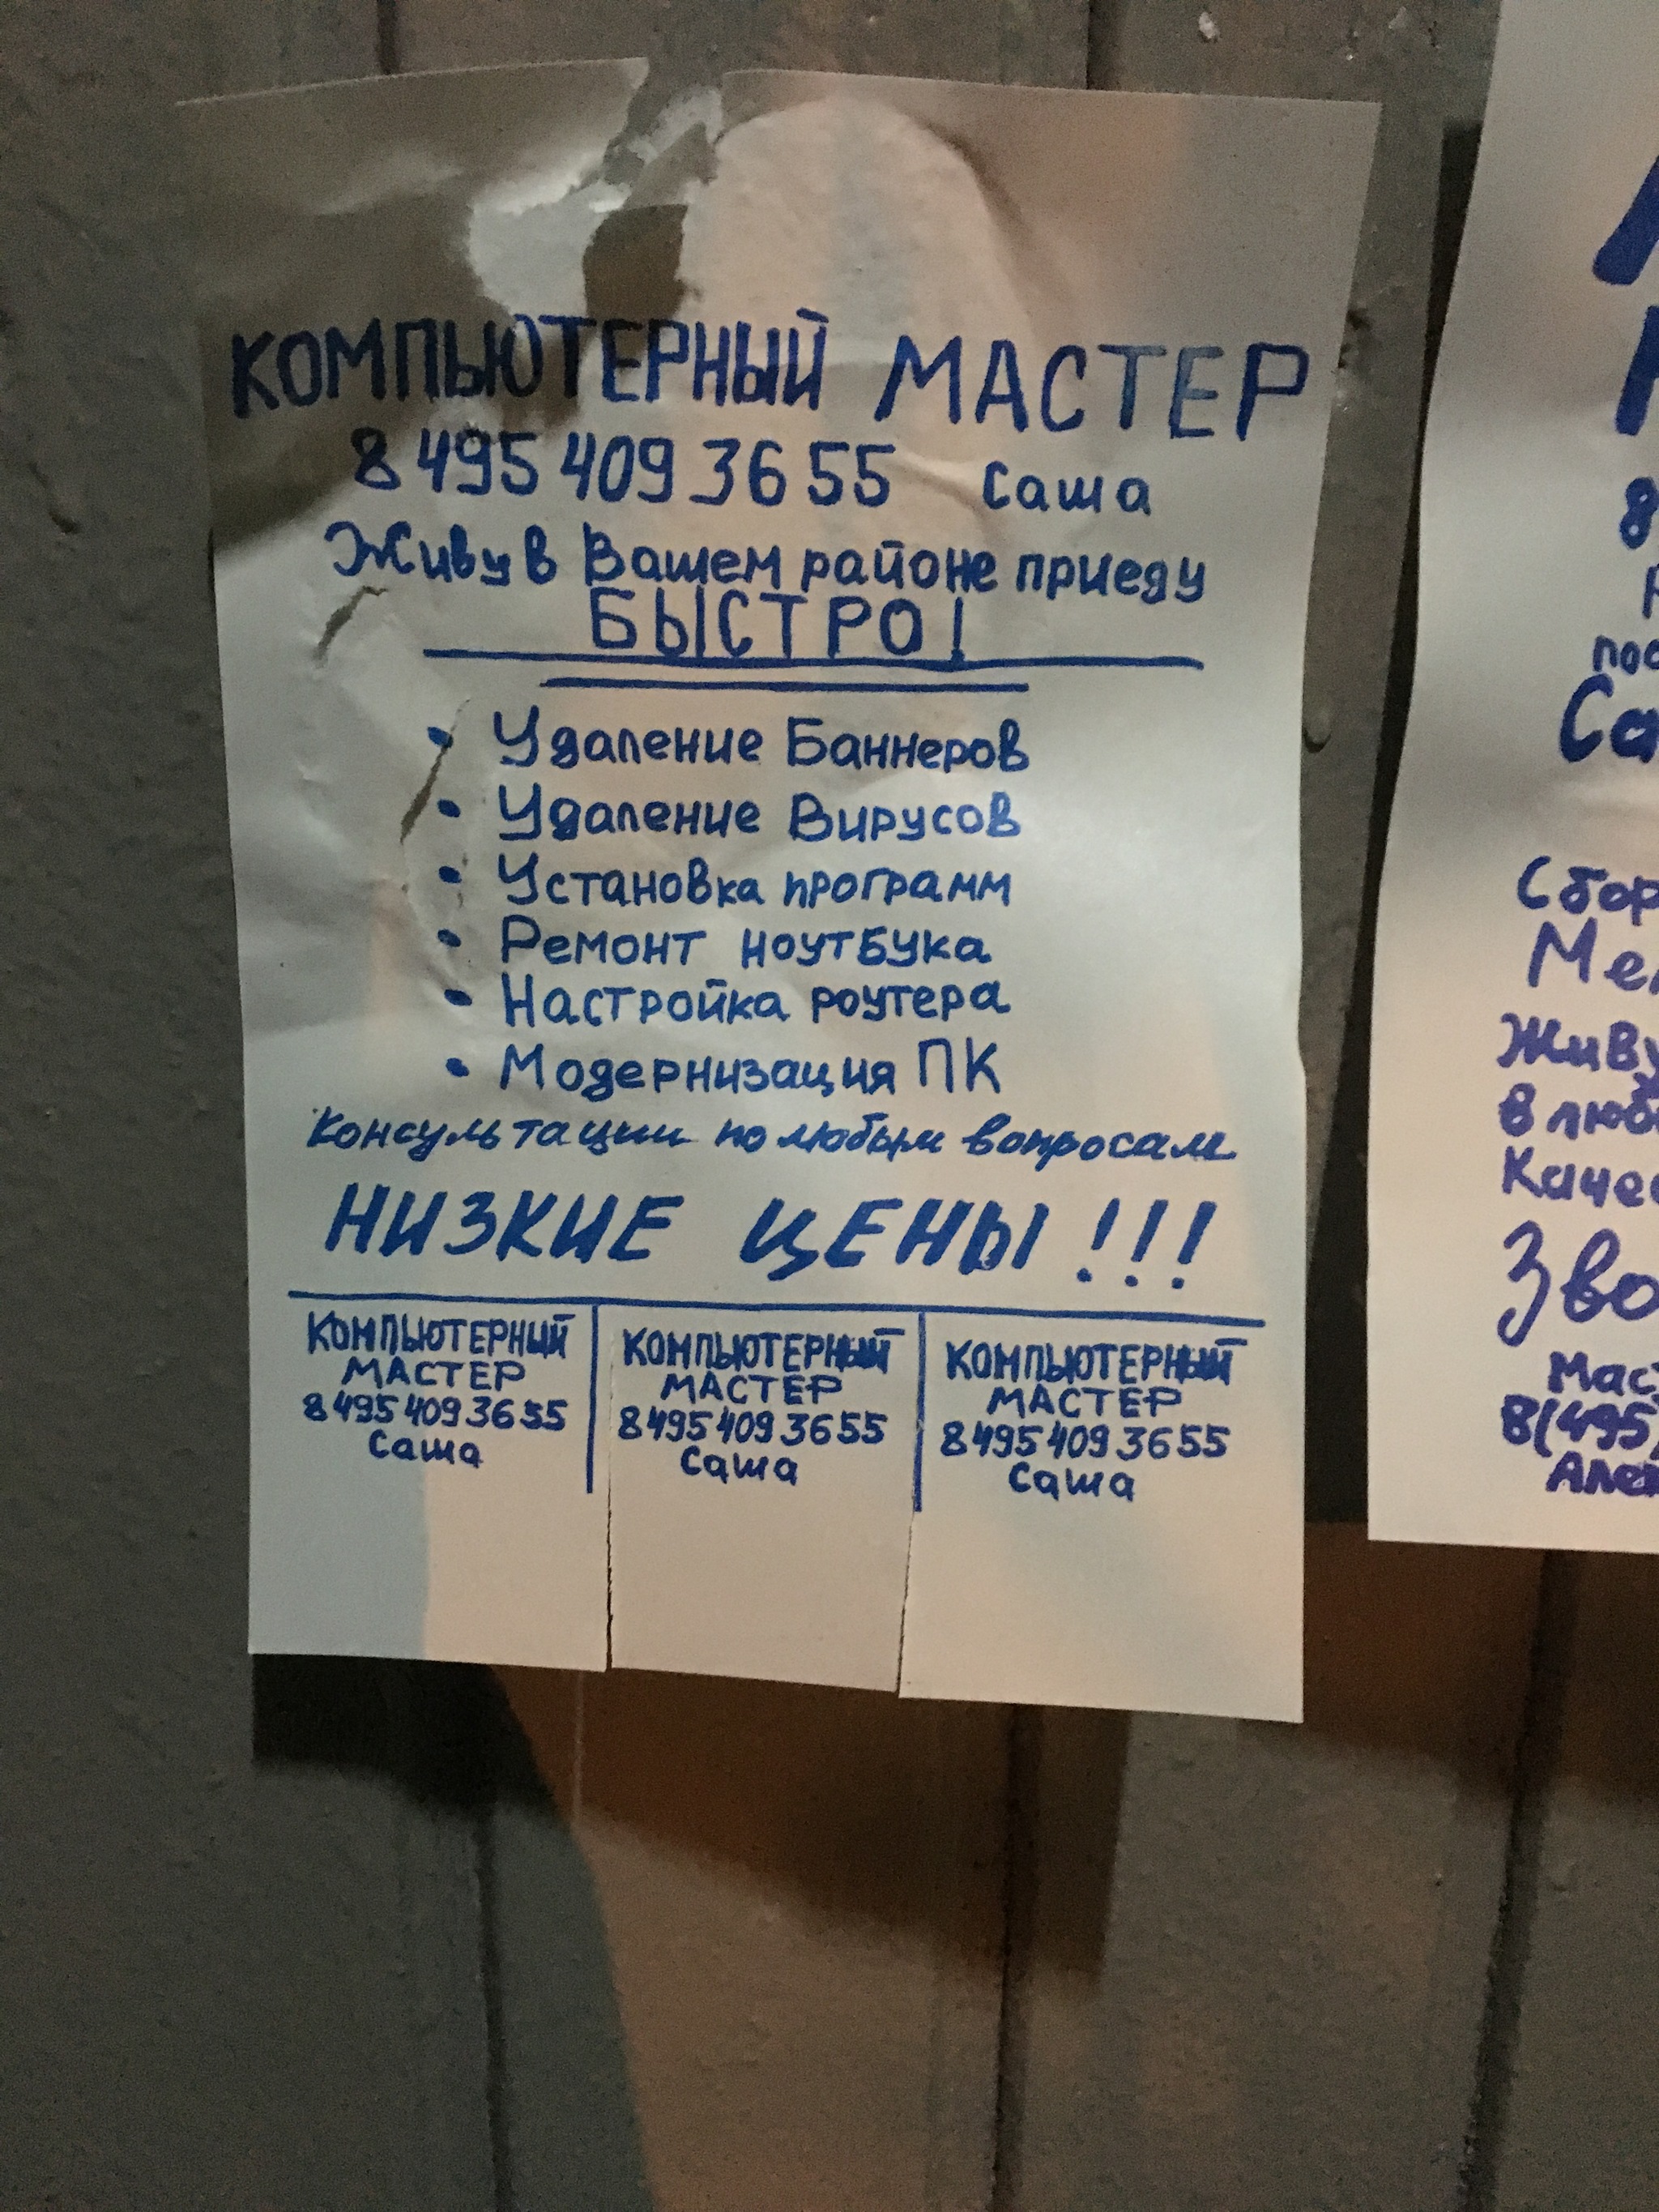 КОМПЬЮТЕРНЫЙ МАСТЕР
8 495 409 36 55 Саша
Живу в Вашем районе приеду
БЫСТРО!
• Удаление Баннеров
• Удаление Вирусов
• Установка программ
• Ремонт ноутбука
• Настройка роутера
• Модернизация ПК
Консультации по любым вопросам
НИЗКИЕ ЦЕНЫ!!!
КОМПЬЮТЕРНЫЙ
МАСТЕР
8 495 409 3655
Саша
КОМПЬЮТЕРНЫЙ
МАСТЕР
8 495 409 3655
Саша
КОМПЬЮТЕРНЫЙ
МАСТЕР
8 495 409 3655
Саша
8(495)